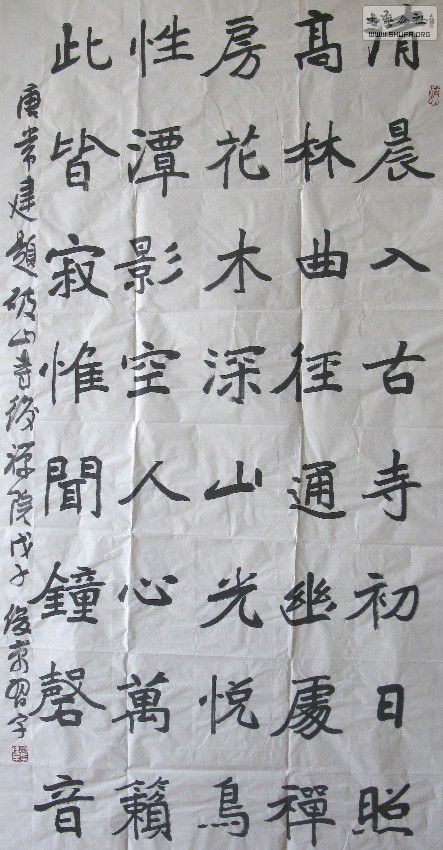 清晨入古寺初日照
髙林曲徑通幽處禪
房花木深山光悦鳥
性潭影空人心萬籟
此皆寂惟聞鐘磬音
唐常建題破山寺後禪院戊子習字
書法公社
WWW.SHUFA.ORG